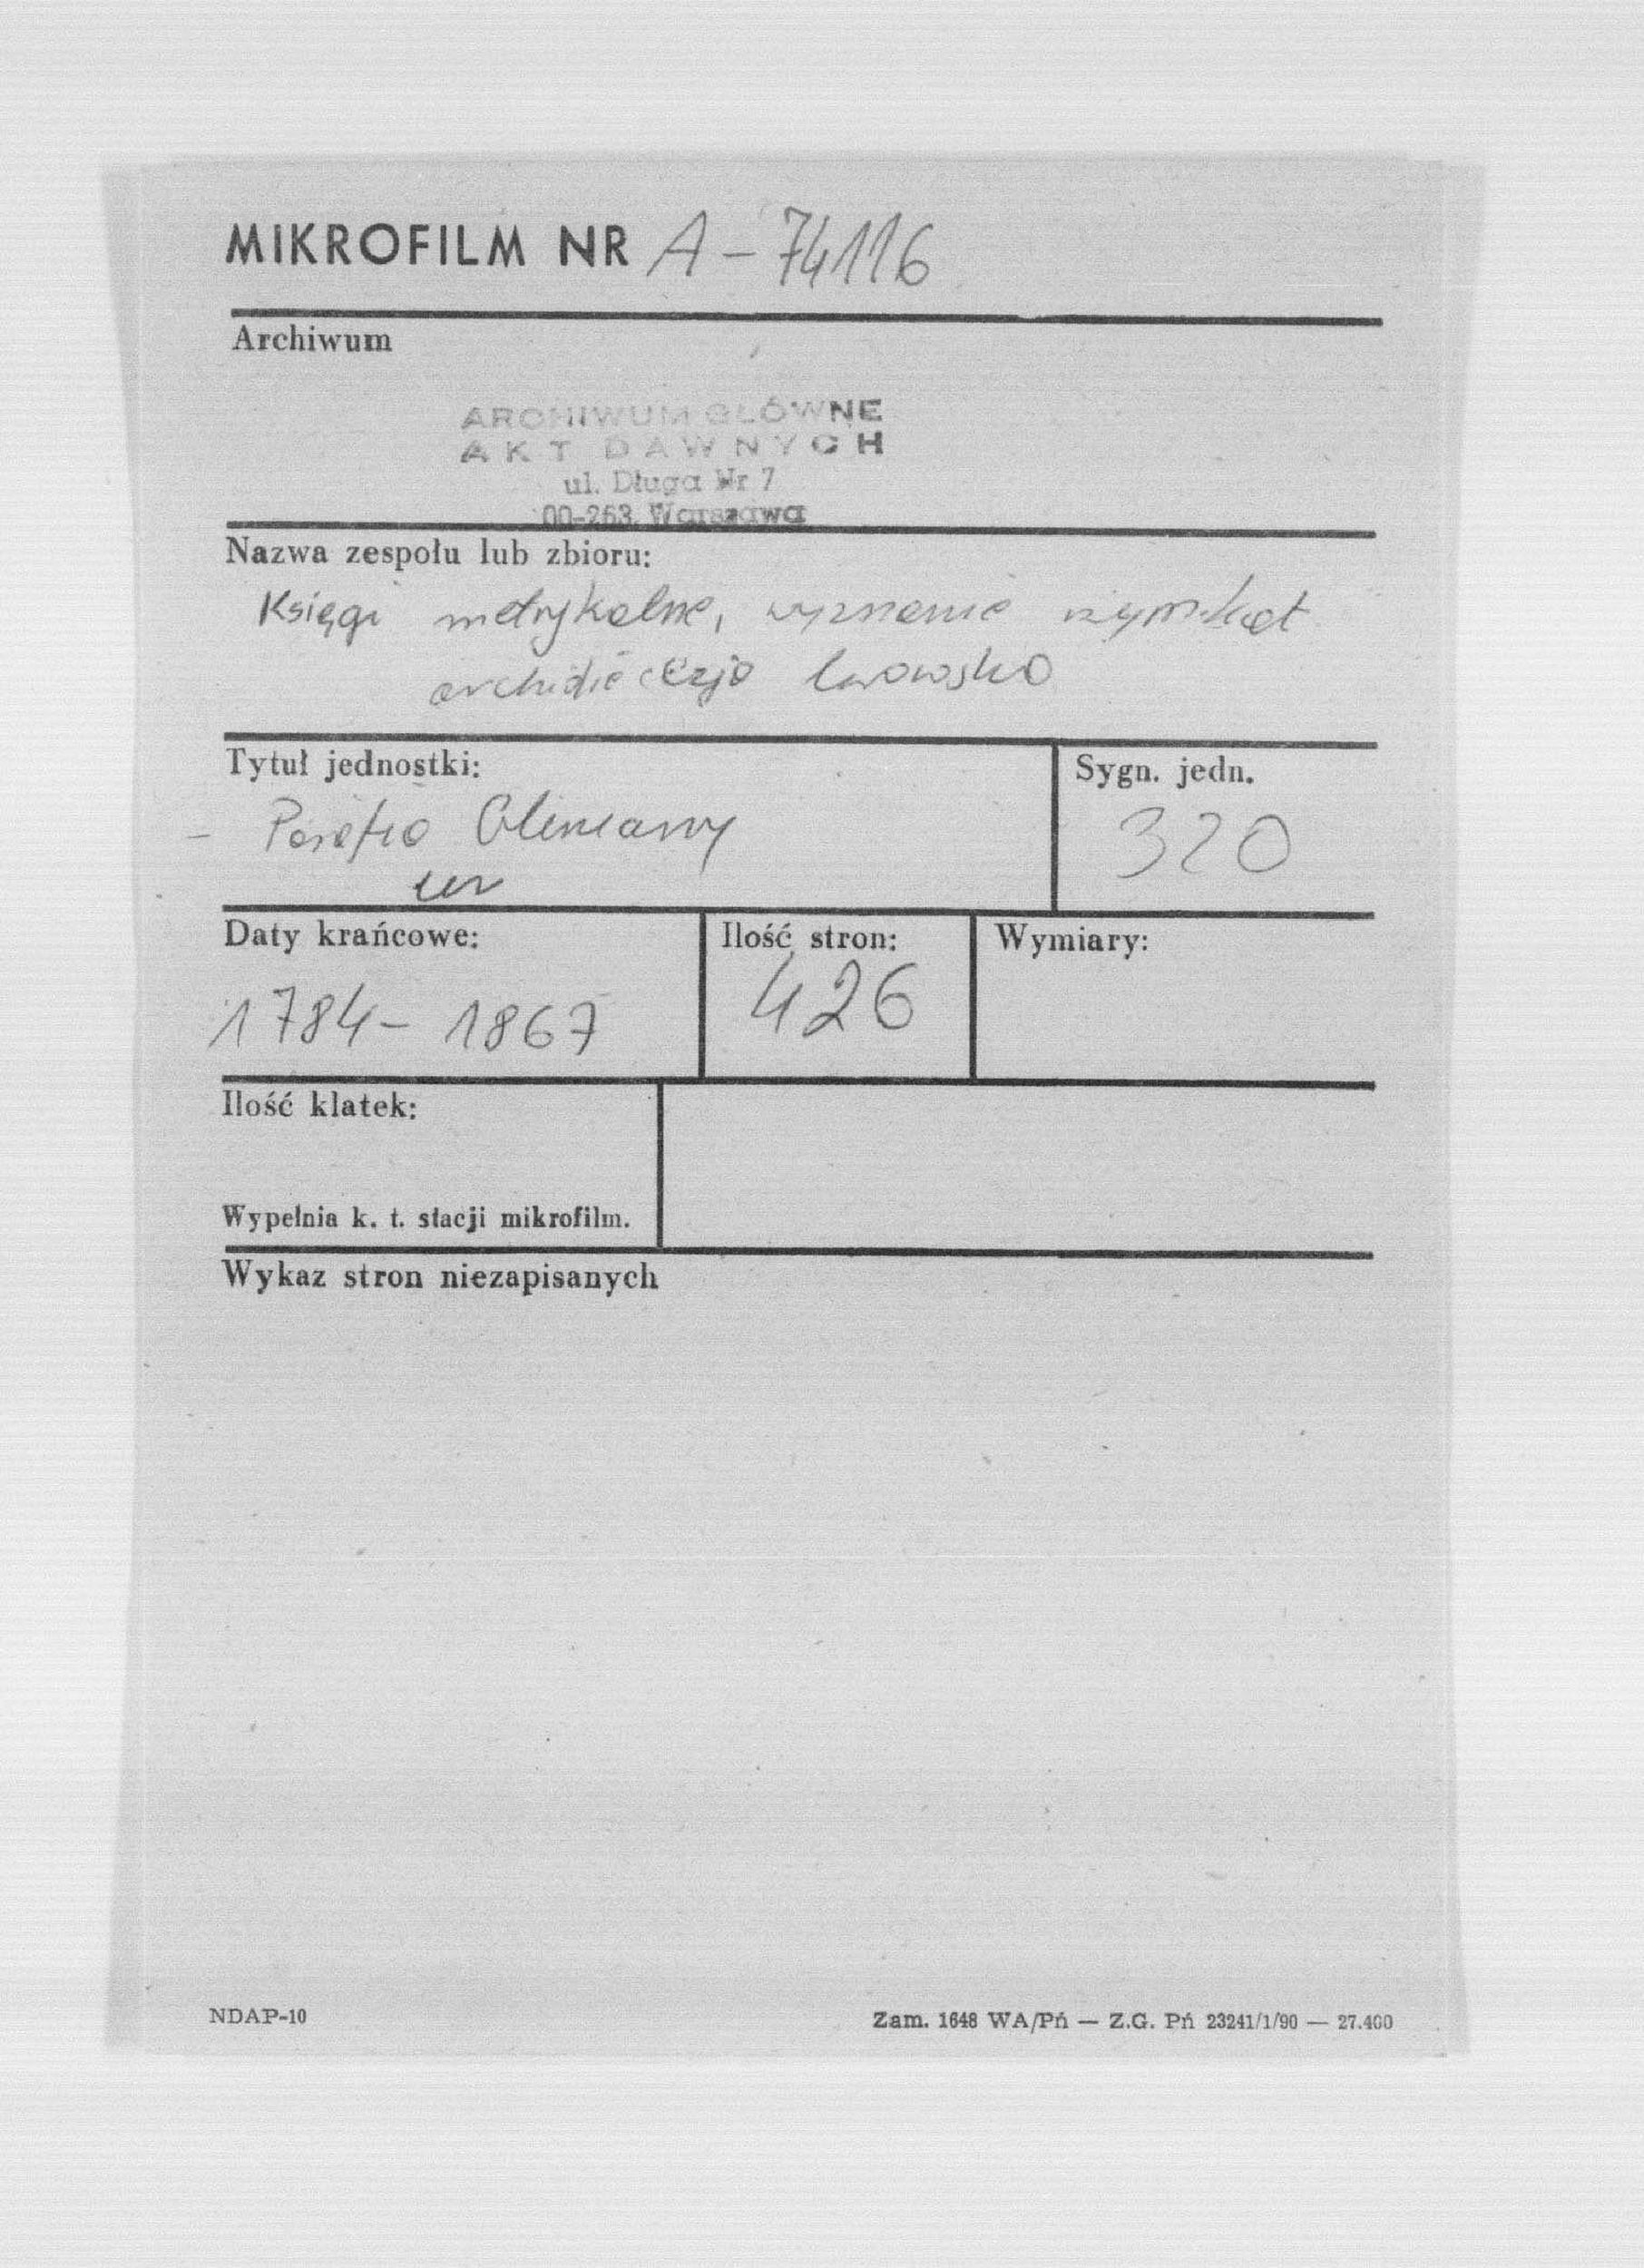 MIKROFILM NR A - 74116
Archiwum
ARCHIWUM GŁÓWNE
AKT DAWNYCH
ul. Długa Nr 7
00-263 Warszawa
Nazwa zespołu lub zbioru:
Księgi metrykalne, wyznanie rzym-kat
archidiecezja lwowska
Tytuł jednostki:
Sygn. jedn.
- Parafia Gliniany
320
ur
Daty krańcowe:
Ilość stron:
Wymiary:
1784 - 1867
426
Ilość klatek:
Wypełnia k. t. stacji mikrofilm.
Wykaz stron niezapisanych
NDAP-10
Zam. 1648 WA/Pń — Z.G. Pń 23241/1/90 — 27.400